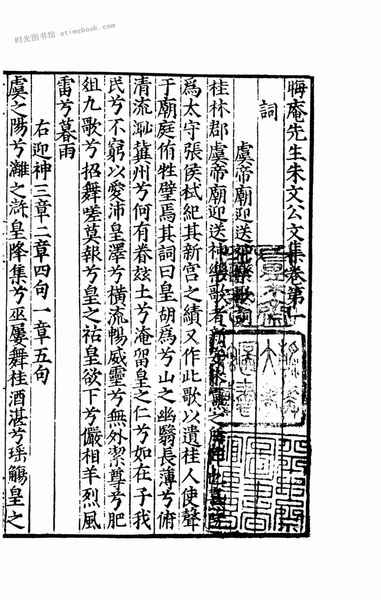 时光图书馆 etimebook.com
晦庵先生朱文公文集卷第一
詞
虞帝廟迎送神樂歌詞
桂林郡虞帝廟迎送神樂歌者
為太守張侯栻紀其新宮之績又作此歌以遺桂人使聲
于廟庭侑牲璧焉其詞曰皇胡為兮山之幽翳長薄兮俯
清流渺冀州兮何有眷玆土兮淹留皇之仁兮如在子我
民兮不窮以愛沛皇澤兮橫流暢威靈兮無外潔尊兮肥
俎九歌兮招舞嗟莫報兮皇之祜皇欲下兮儼相羊烈風
雷兮暮雨
右迎神三章二章四句一章五句
虞之陽兮灕之滸皇降集兮巫屢舞桂酒湛兮瑶觴皇之